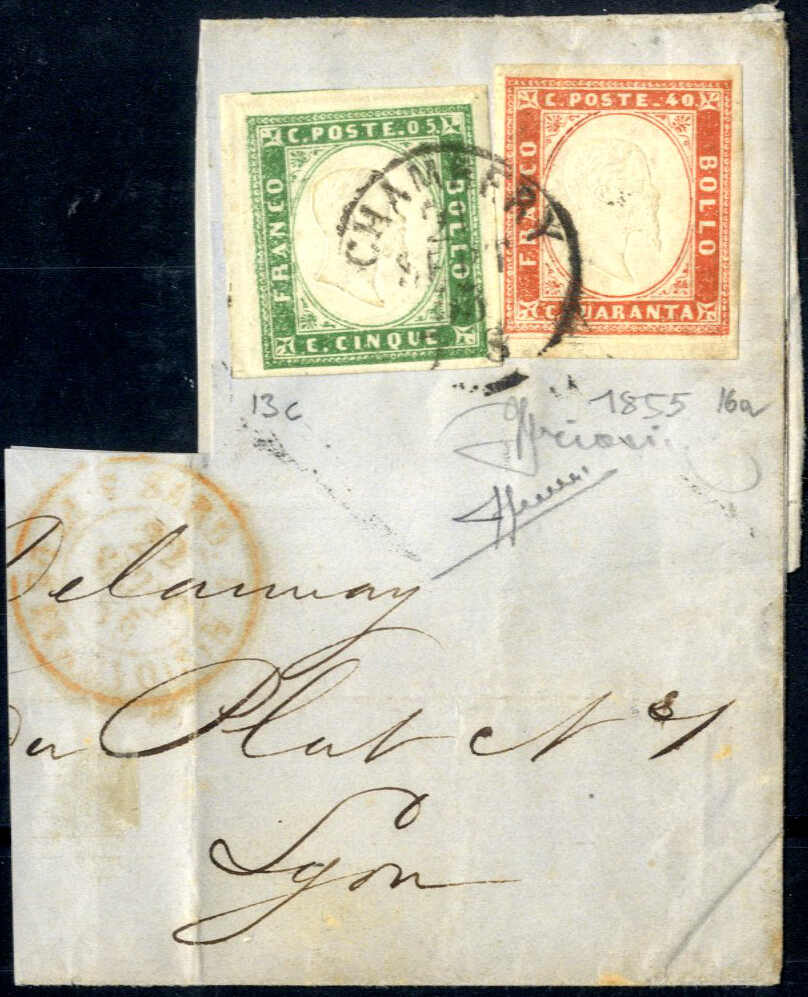 C. POSTE. 05
FRANCO
BOLLO
C. CINQUE
C. POSTE. 40
FRANCO
BOLLO
C. QUARANTA
CHAMBERY
SEPT
13c
1855
16a
Delaunay
du Plat N° 1
Lyon